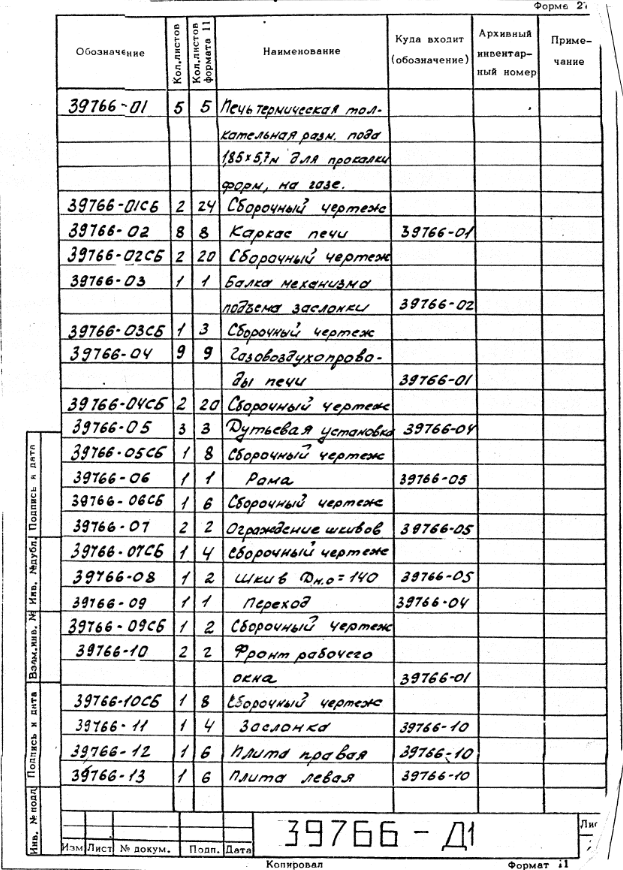 Форма 2
Обозначение Кол.листов Кол.листов формата 11 Наименование Куда входит (обозначение) Архивный инвентар-ный номер Приме-чание
39766-01 5 5 Печь термическая тол-
кательная разм. пода
1,85х5,7м для прокалки
форм, на газе.
39766-01СБ 2 24 Сборочный чертеж
39766-02 8 8 Каркас печи 39766-01
39766-02СБ 2 20 Сборочный чертеж
39766-03 1 1 Балка механизма
подъема заслонки 39766-02
39766-03СБ 1 3 Сборочный чертеж
39766-04 9 9 Газовоздухопрово-
ды печи 39766-01
39766-04СБ 2 20 Сборочный чертеж
39766-05 3 3 Дутьевая установка 39766-04
39766-05СБ 1 8 Сборочный чертеж
39766-06 1 1 Рама 39766-05
39766-06СБ 1 6 Сборочный чертеж
39766-07 2 2 Ограждение шкивов 39766-05
39766-07СБ 1 4 Сборочный чертеж
39766-08 1 2 Шкив Дн.о=140 39766-05
39766-09 1 1 Переход 39766-04
39766-09СБ 1 2 Сборочный чертеж
39766-10 2 2 Фронт рабочего
окна 39766-01
39766-10СБ 1 8 Сборочный чертеж
39766-11 1 4 Заслонка 39766-10
39766-12 1 6 Плита правая 39766-10
39766-13 1 6 Плита левая 39766-10
Инв. № подл. Подпись и дата Взам.инв. № Инв. №дубл. Подпись и дата
Изм Лист № докум. Подп. Дата
39766-Д1
Лис
Копировал Формат 11